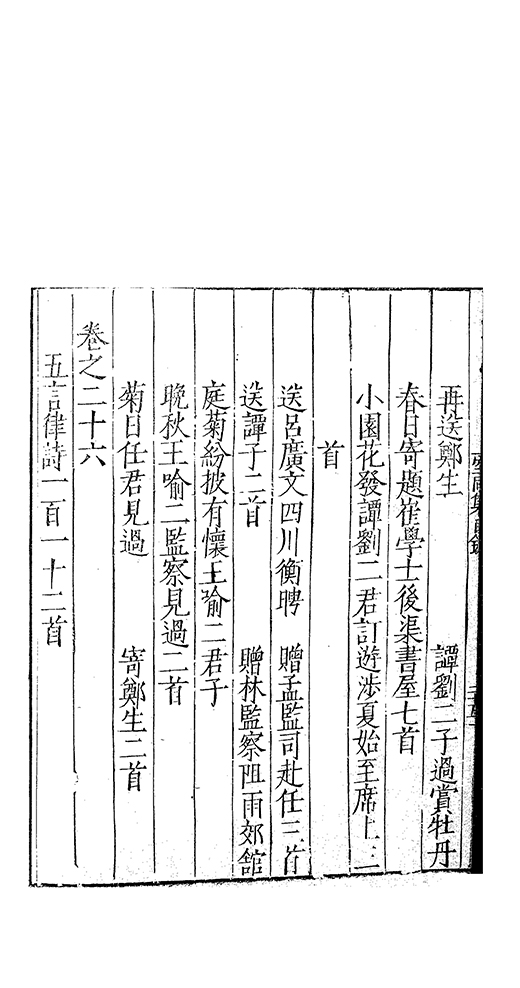 再送鄭生　譚劉二子過賞牡丹
春日寄題崔學士後渠書屋七首
小園花發譚劉二君訂遊涉夏始至席上三
首
送呂廣文四川衡聘　贈孟監司赴任三首
送譚子二首　贈林監察阻雨郊館
庭菊紛披有懷王喻二君子
晚秋王喻二監察見過二首
菊日任君見過　寄鄭生二首
卷之二十六
五言律詩一百一十二首